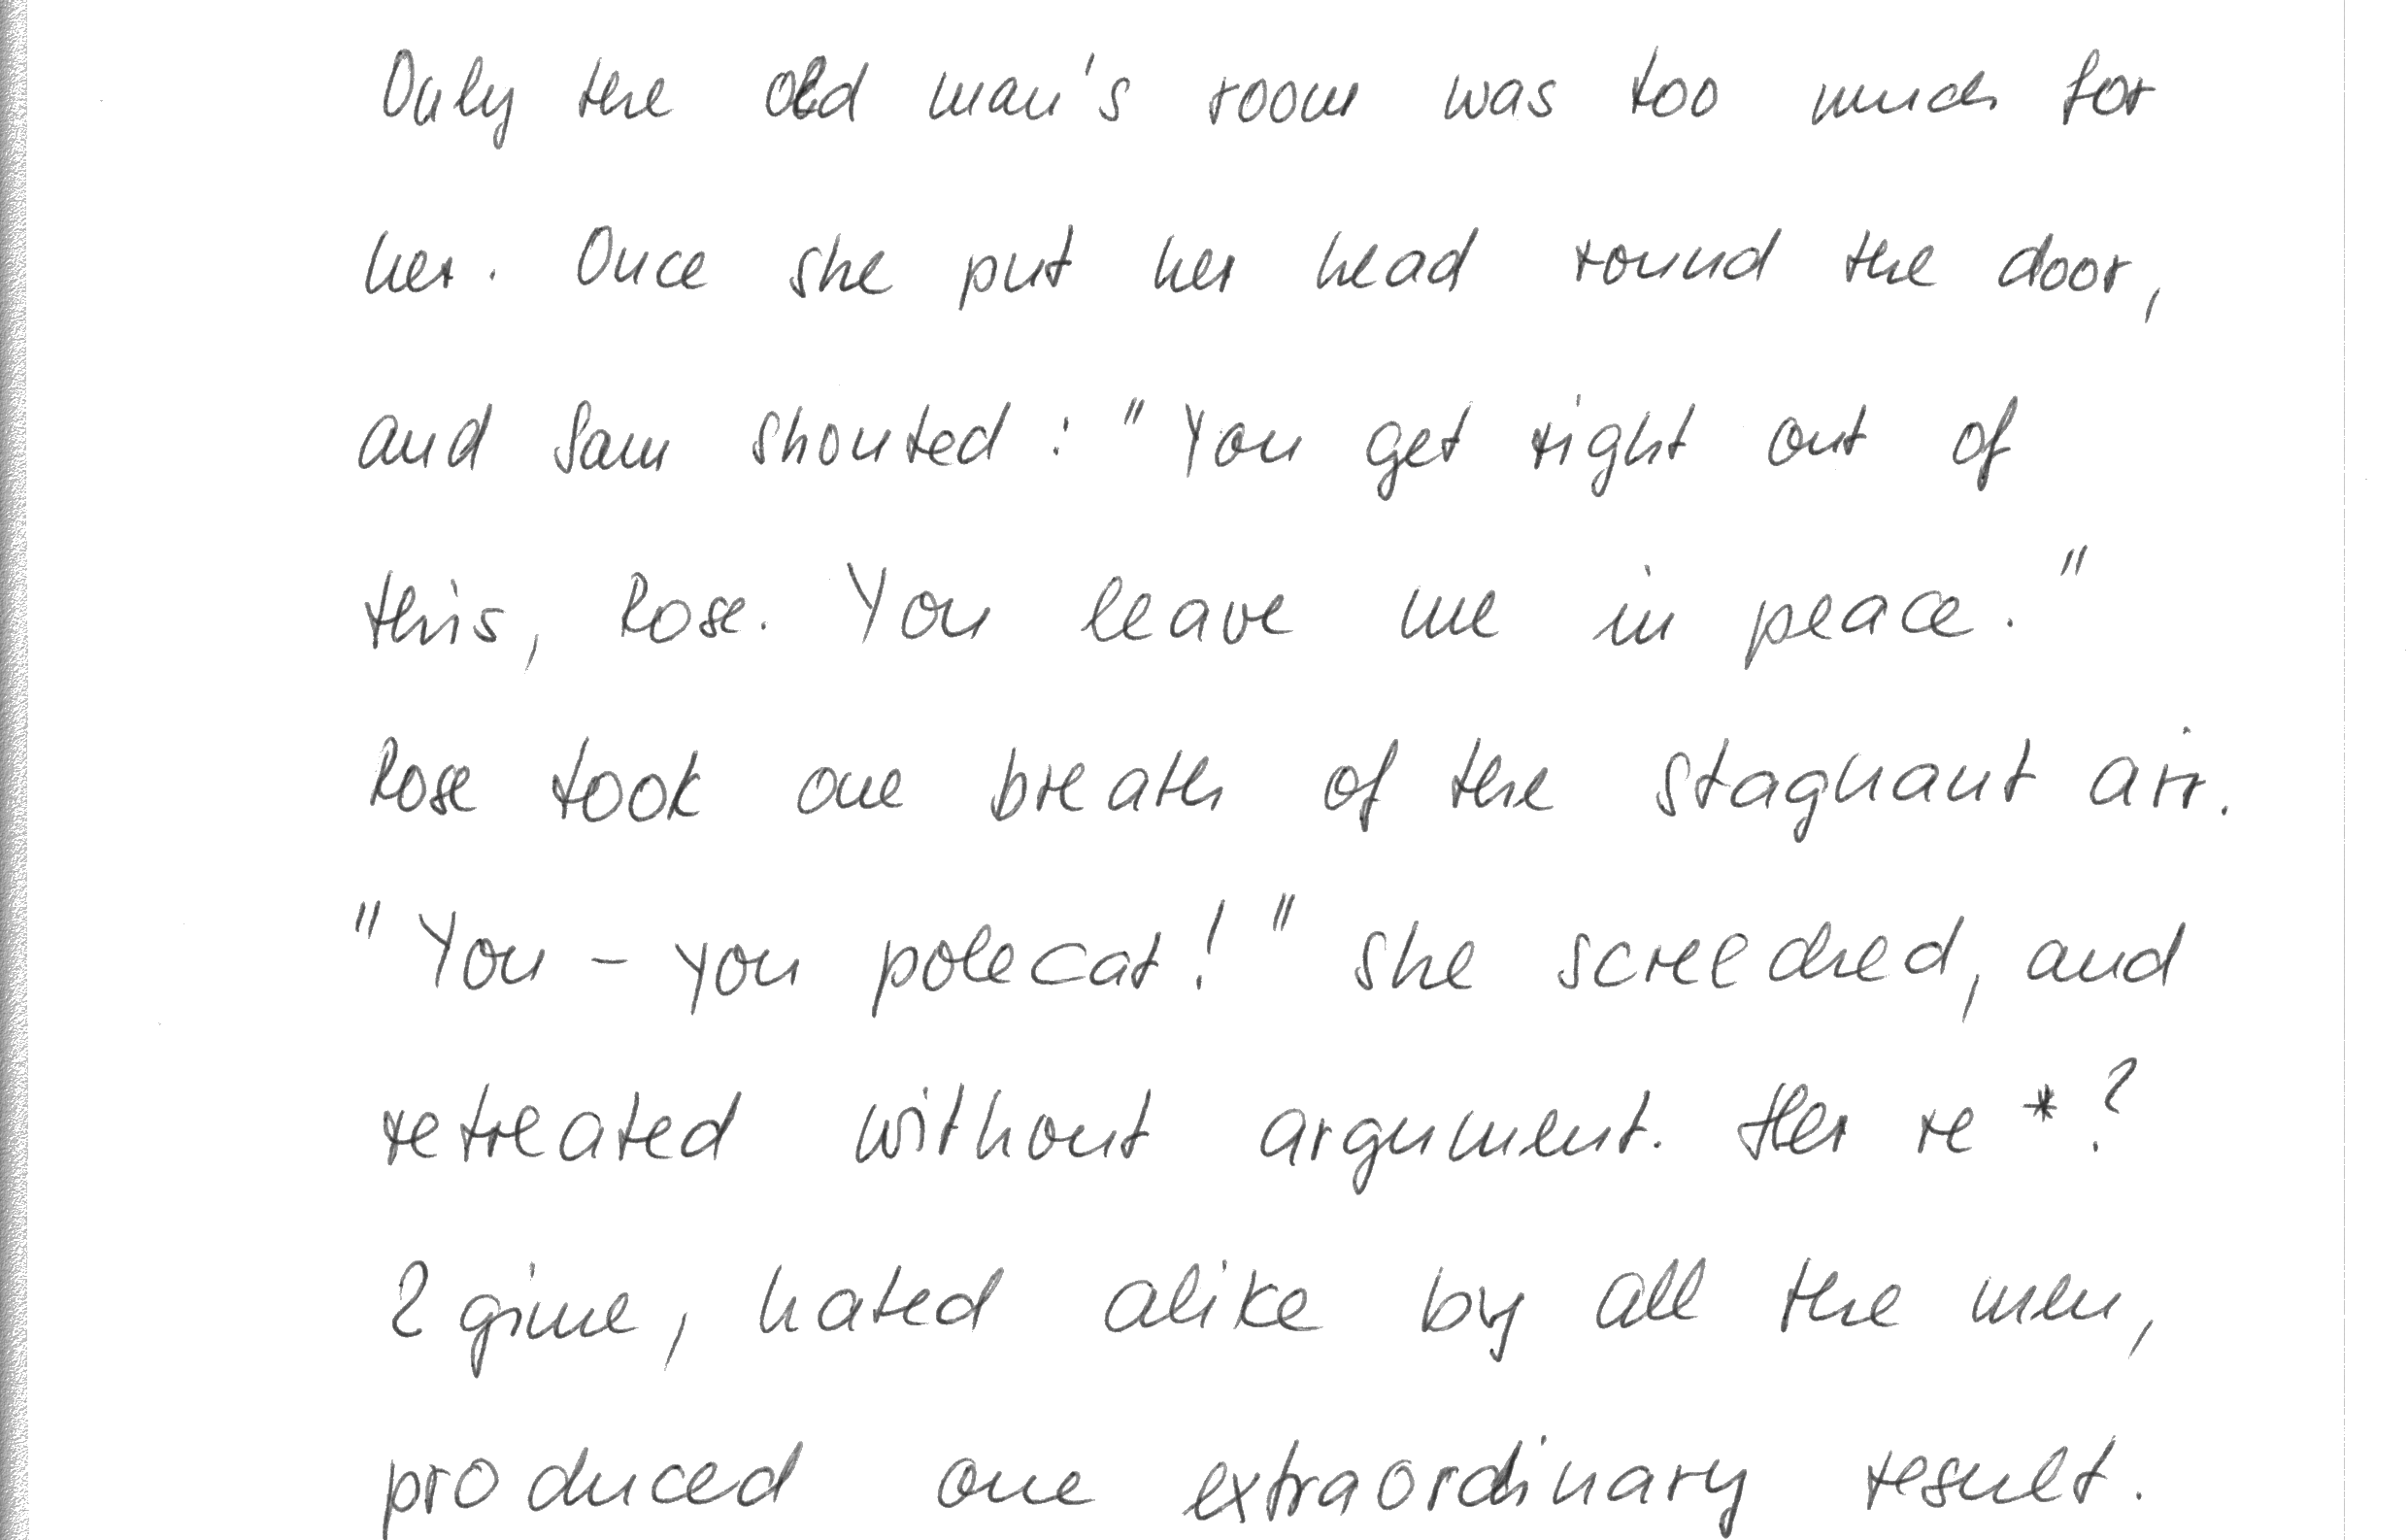 Only the old man's room was too much for
her. Once she put her head round the door,
and Sam shouted : "You get right out of
this, Rose. You leave me in peace."
Rose took one breath of the stagnant air.
"You - you polecat!" she screeched, and
retreated without argument. Her re *?
? gime, hated alike by all the men,
produced one extraordinary result.